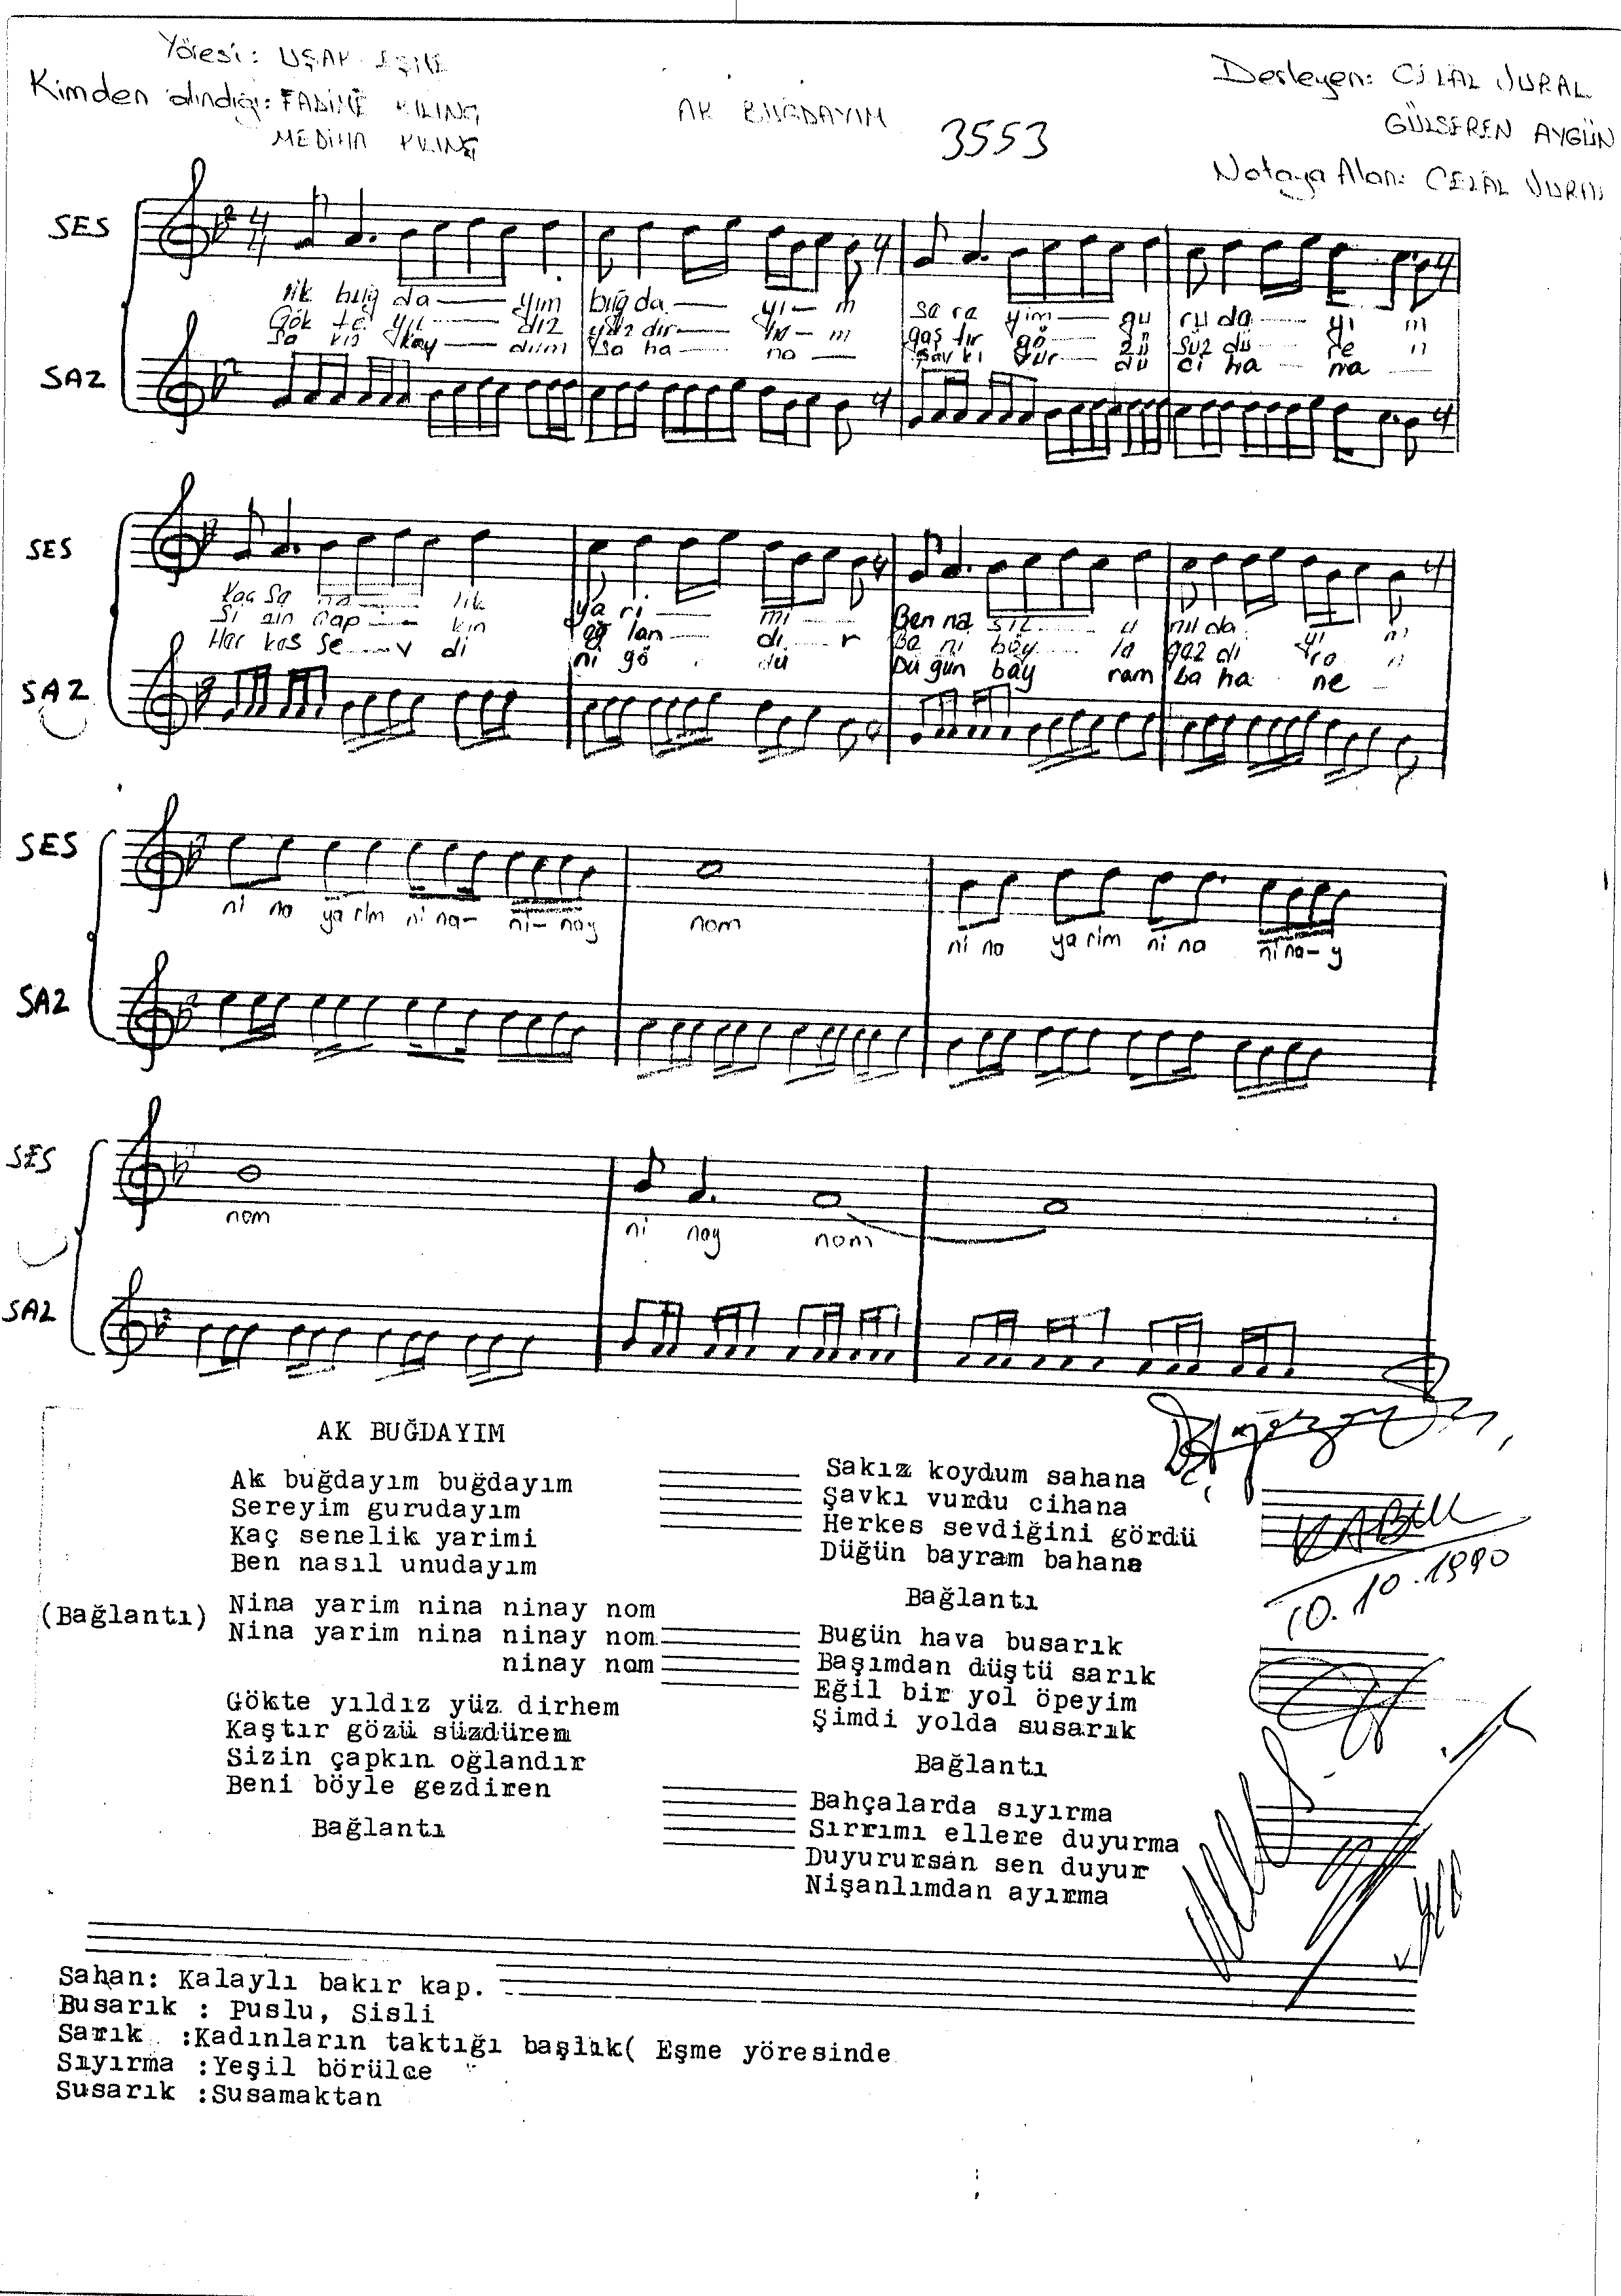 Yöresi: UŞAK EŞME
Kimden alındığı: FADİME KILINÇ
MEDİHA KILINÇ
AK BUĞDAYIM
3553
Derleyen: CELAL VURAL
GÜLSEREN AYGÜN
Notaya Alan: CELAL VURAL
SES
4/4
buğ da yım buğ da yı m sa ra yim gu ru da yı m
Gök te yıl dız yüz dir gaş tır gö zü süz dü re n
sa kız koy dum sa ha na şav kı vur du ci ha na
SAZ
SES
Kaç sa na lik ya ri mi Ben na sıl u nu da yı
Si zin çap kın oğ lan dı r Ba ni böy la gaz di ra n
Har kas se v di ni gö dü Dü ğün bay ram ba ha ne
SAZ
SES
ni na ya rim ni na- ni- nay nom ni na ya rim ni na ni na-y
SAZ
SES
nom ni nay nom
SAZ
AK BUĞDAYIM
Ak buğdayım buğdayım
Sereyim gurudayım
Kaç senelik yarimi
Ben nasıl unudayım
(Bağlantı) Nina yarim nina ninay nom
Nina yarim nina ninay nom
ninay nom
Gökte yıldız yüz dirhem
Kaştır gözü süzdürem
Sizin çapkın oğlandır
Beni böyle gezdiren
Bağlantı
Sakız koydum sahana
Şavkı vurdu cihana
Herkes sevdiğini gördü
Düğün bayram bahane
Bağlantı
Bugün hava busarık
Başımdan düştü sarık
Eğil bir yol öpeyim
Şimdi yolda susarık
Bağlantı
Bahçalarda sıyırma
Sırrımı ellere duyurma
Duyurursan sen duyur
Nişanlımdan ayırma
KABUL
10.10.1990
Sahan: Kalaylı bakır kap.
Busarık : Puslu, Sisli
Sarık :Kadınların taktığı başlık( Eşme yöresinde
Sıyırma :Yeşil börülce
Susarık :Susamaktan